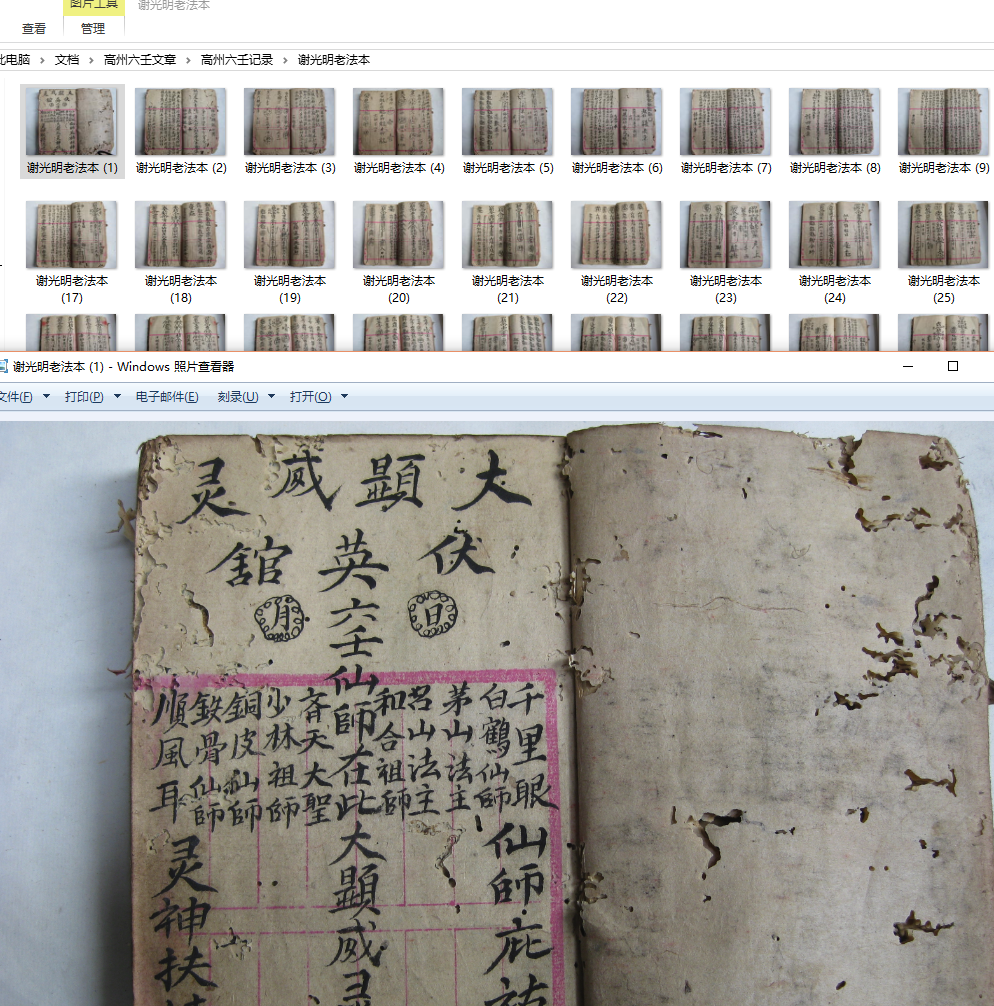 图片工具
谢光明老法本
查看
管理
此电脑 › 文档 › 高州六壬文章 › 高州六壬记录 › 谢光明老法本
谢光明老法本 (1)
谢光明老法本 (2)
谢光明老法本 (3)
谢光明老法本 (4)
谢光明老法本 (5)
谢光明老法本 (6)
谢光明老法本 (7)
谢光明老法本 (8)
谢光明老法本 (9)
谢光明老法本 (17)
谢光明老法本 (18)
谢光明老法本 (19)
谢光明老法本 (20)
谢光明老法本 (21)
谢光明老法本 (22)
谢光明老法本 (23)
谢光明老法本 (24)
谢光明老法本 (25)
谢光明老法本 (1) - Windows 照片查看器
文件(F)
打印(P)
电子邮件(E)
刻录(U)
打开(O)
大顯威灵
伏英舘
日
月
千里眼仙師庇祐
白鶴仙師
茅山法主
茖山法主
和合祖師
六壬仙師在此大顯威灵
斉天大聖
少林祖師
銅皮仙師
鈙骨仙師
順風耳灵神扶